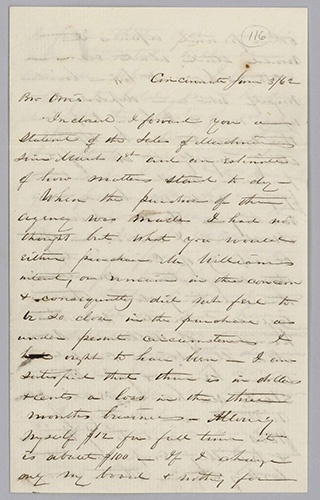 116
Cincinnati June 3/62
Bro Otis
Inclosed I forward you a
Statement of the Sales of Machines
since March 1st and an estimate
of how matters stand to day -
When the purchase of the
Agency was made I had no
thought but what you would
either purchase Mr Williams
interest, or remain in the concern
& consequently did not feel to
be so close in the purchase as
under present circumstances I
ought to have been - I am
satisfied that there is in dollars
& cents a loss in the three
months business - Allowing
myself $12 for full time it
is about $100 - If I charge
only my board & nothing for